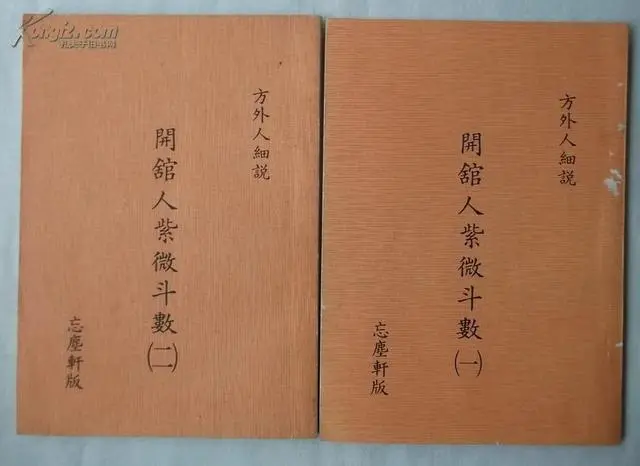 Kongfz.com
孔夫子旧书网
方外人細説
開舘人紫微斗數(一)
忘塵軒版
方外人細説
開舘人紫微斗數(二)
忘塵軒版